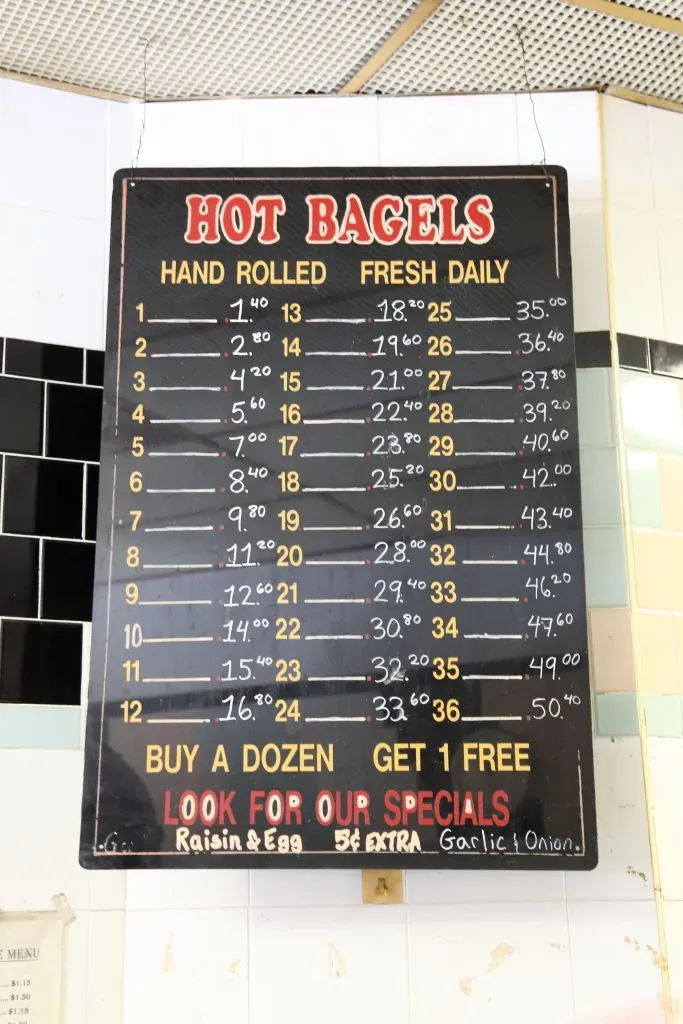 HOT BAGELS
HAND ROLLED FRESH DAILY
1 1.40 13 18.20 25 35.00
2 2.80 14 19.60 26 36.40
3 4.20 15 21.00 27 37.80
4 5.60 16 22.40 28 39.20
5 7.00 17 23.80 29 40.60
6 8.40 18 25.20 30 42.00
7 9.80 19 26.60 31 43.40
8 11.20 20 28.00 32 44.80
9 12.60 21 29.40 33 46.20
10 14.00 22 30.80 34 47.60
11 15.40 23 32.20 35 49.00
12 16.80 24 33.60 36 50.40
BUY A DOZEN GET 1 FREE
LOOK FOR OUR SPECIALS
Raisin & Egg 5¢ EXTRA Garlic & Onion
MENU
$1.15
$1.50
$1.15